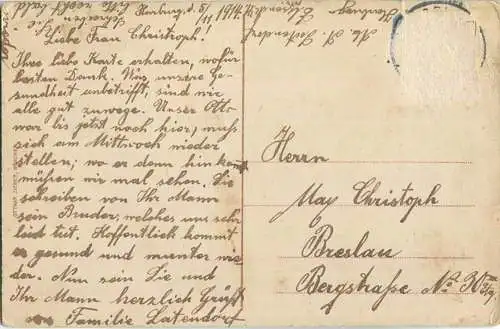 Harburg, d. 8/11 1914.
Liebe Frau Christoph!
Ihre liebe Karte erhalten, wofür
besten Dank. Was unsere Ge-
sundheit anbetrifft, sind wir
alle gut zuwege. Unser Otto
war bis jetzt noch hier, muß
sich am Mittwoch wieder
stellen; wo er denn hin kommt
müßen wir mal sehen. Sie
schreiben von Ihr Mann
sein Bruder, welches uns sehr
leid tut. Hoffentlich kommt
er gesund und munter wie
der. Nun sein Sie und
Ihr Mann herzlich Grüßt
von Familie Latendorf
Herrn
Max Christoph
Breslau
Bergstraße No.